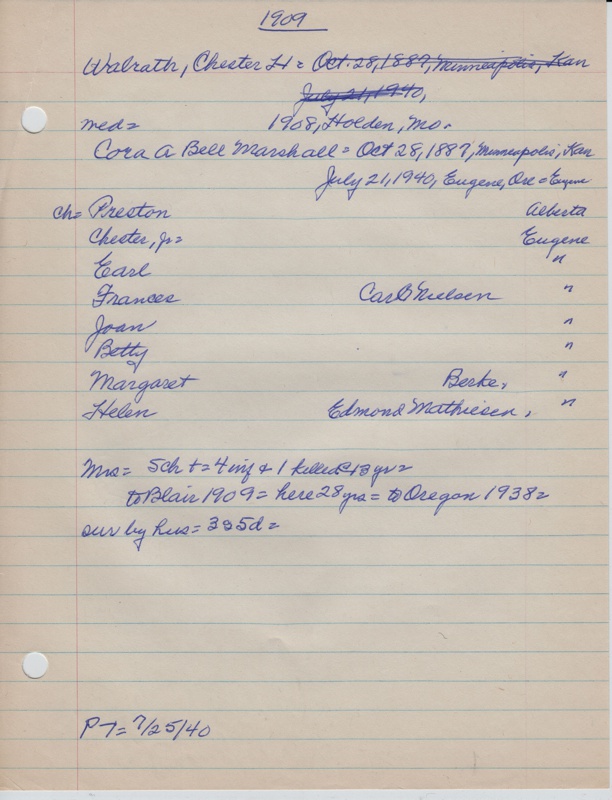 1909
Walrath, Chester H = Oct. 28, 1887, Minneapolis, Kan
July 21, 1940,
med = 1908, Holden, Mo.
Cora A Bell Marshall = Oct 28, 1887, Minneapolis, Kan
July 21, 1940, Eugene, Ore = Eugene
ch = Preston Alberta
Chester, Jr = Eugene
Earl "
Frances Carl Nielsen "
Joan "
Betty "
Margaret Berke, "
Helen Edmond Mathiesen, "
Mrs = 5ch + = 4 inf & 1 killed @ 13 yr =
to Blair 1909 = here 28 yrs = to Oregon 1938 =
sur by hus = 3s 5d =
PT = 7/25/40